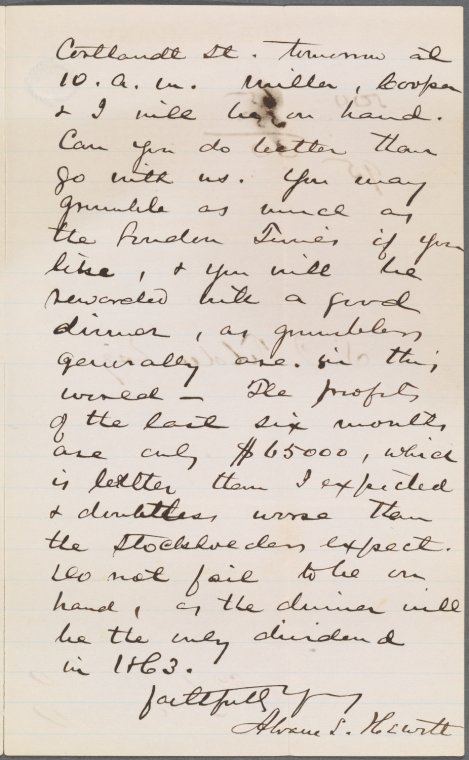 Cortlandt St. tomorrow at
10. a. m. Miller, Cooper
& I will be on hand.
Can you do better than
go with us. You may
grumble as much as
the London Times if you
like, & you will be
rewarded with a good
dinner, as grumblers
generally are in this
world – The profits
of the last six months
are only $65000, which
is better than I expected
& doubtless worse than
the stockholders expect.
Do not fail to be on
hand, as the dinner will
be the only dividend
in 1863.
faithfully Yours
Abram S. Hewitt